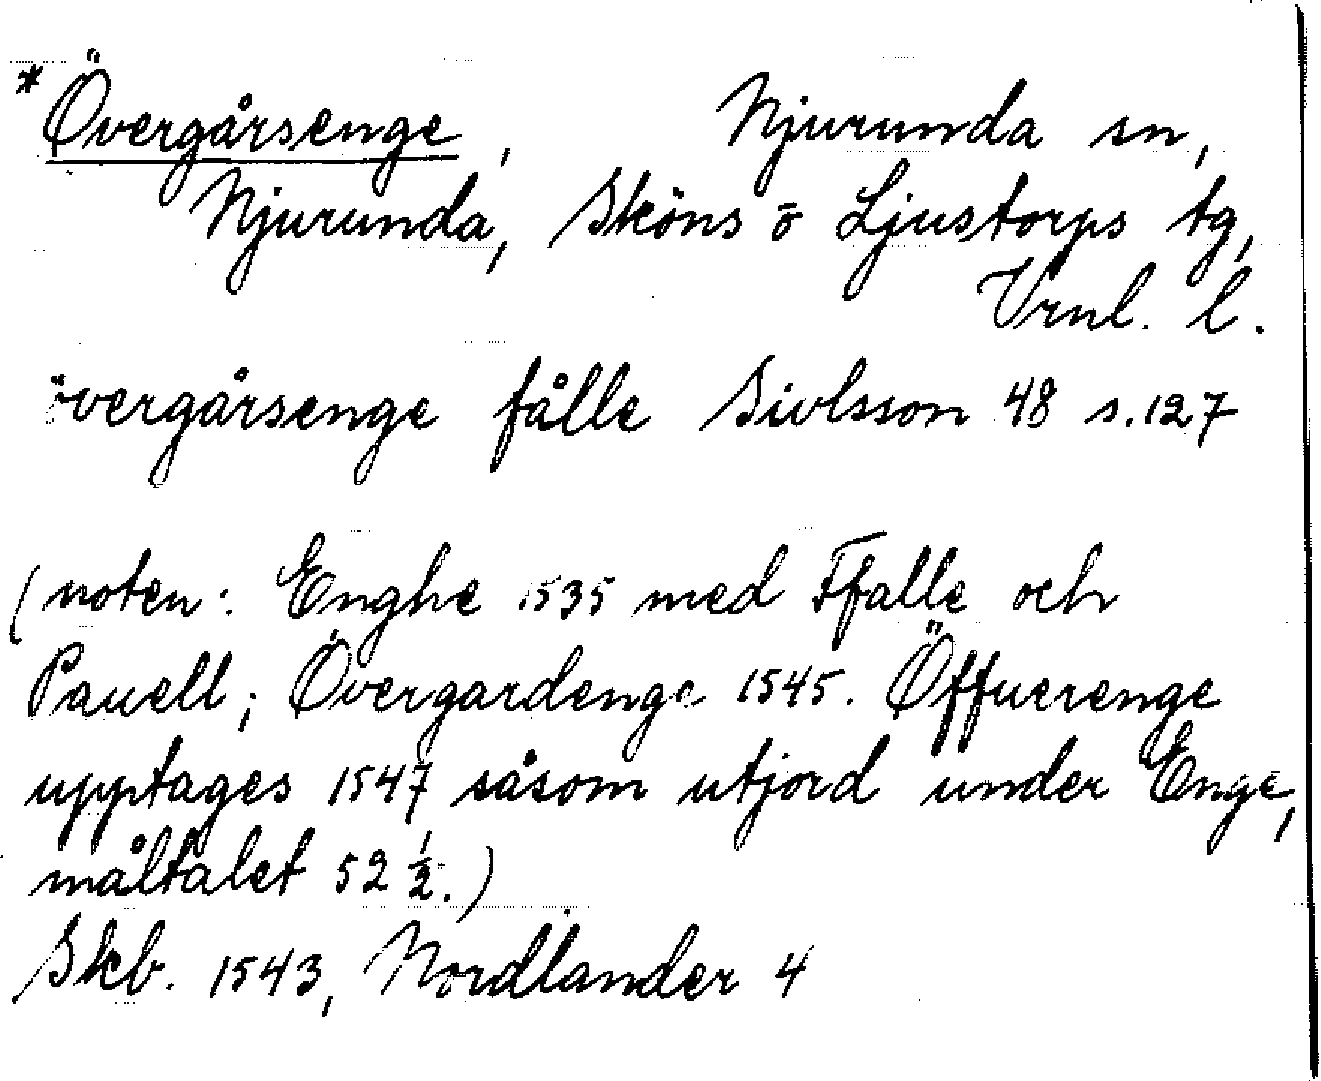 *Övergårsenge, Njurunda sn,
Njurunda, Sköns o Ljustorps tg,
Vrnl. l.
övergårsenge fålle Sivlsson 48 s.127
(noten: Enghe 1535 med Ffalle och
Pauell; Övergardenge 1545. Öffuerenge
upptages 1547 såsom utjord under Enge,
måltalet 52 1/2.)
Skb. 1543, Nordlander 4